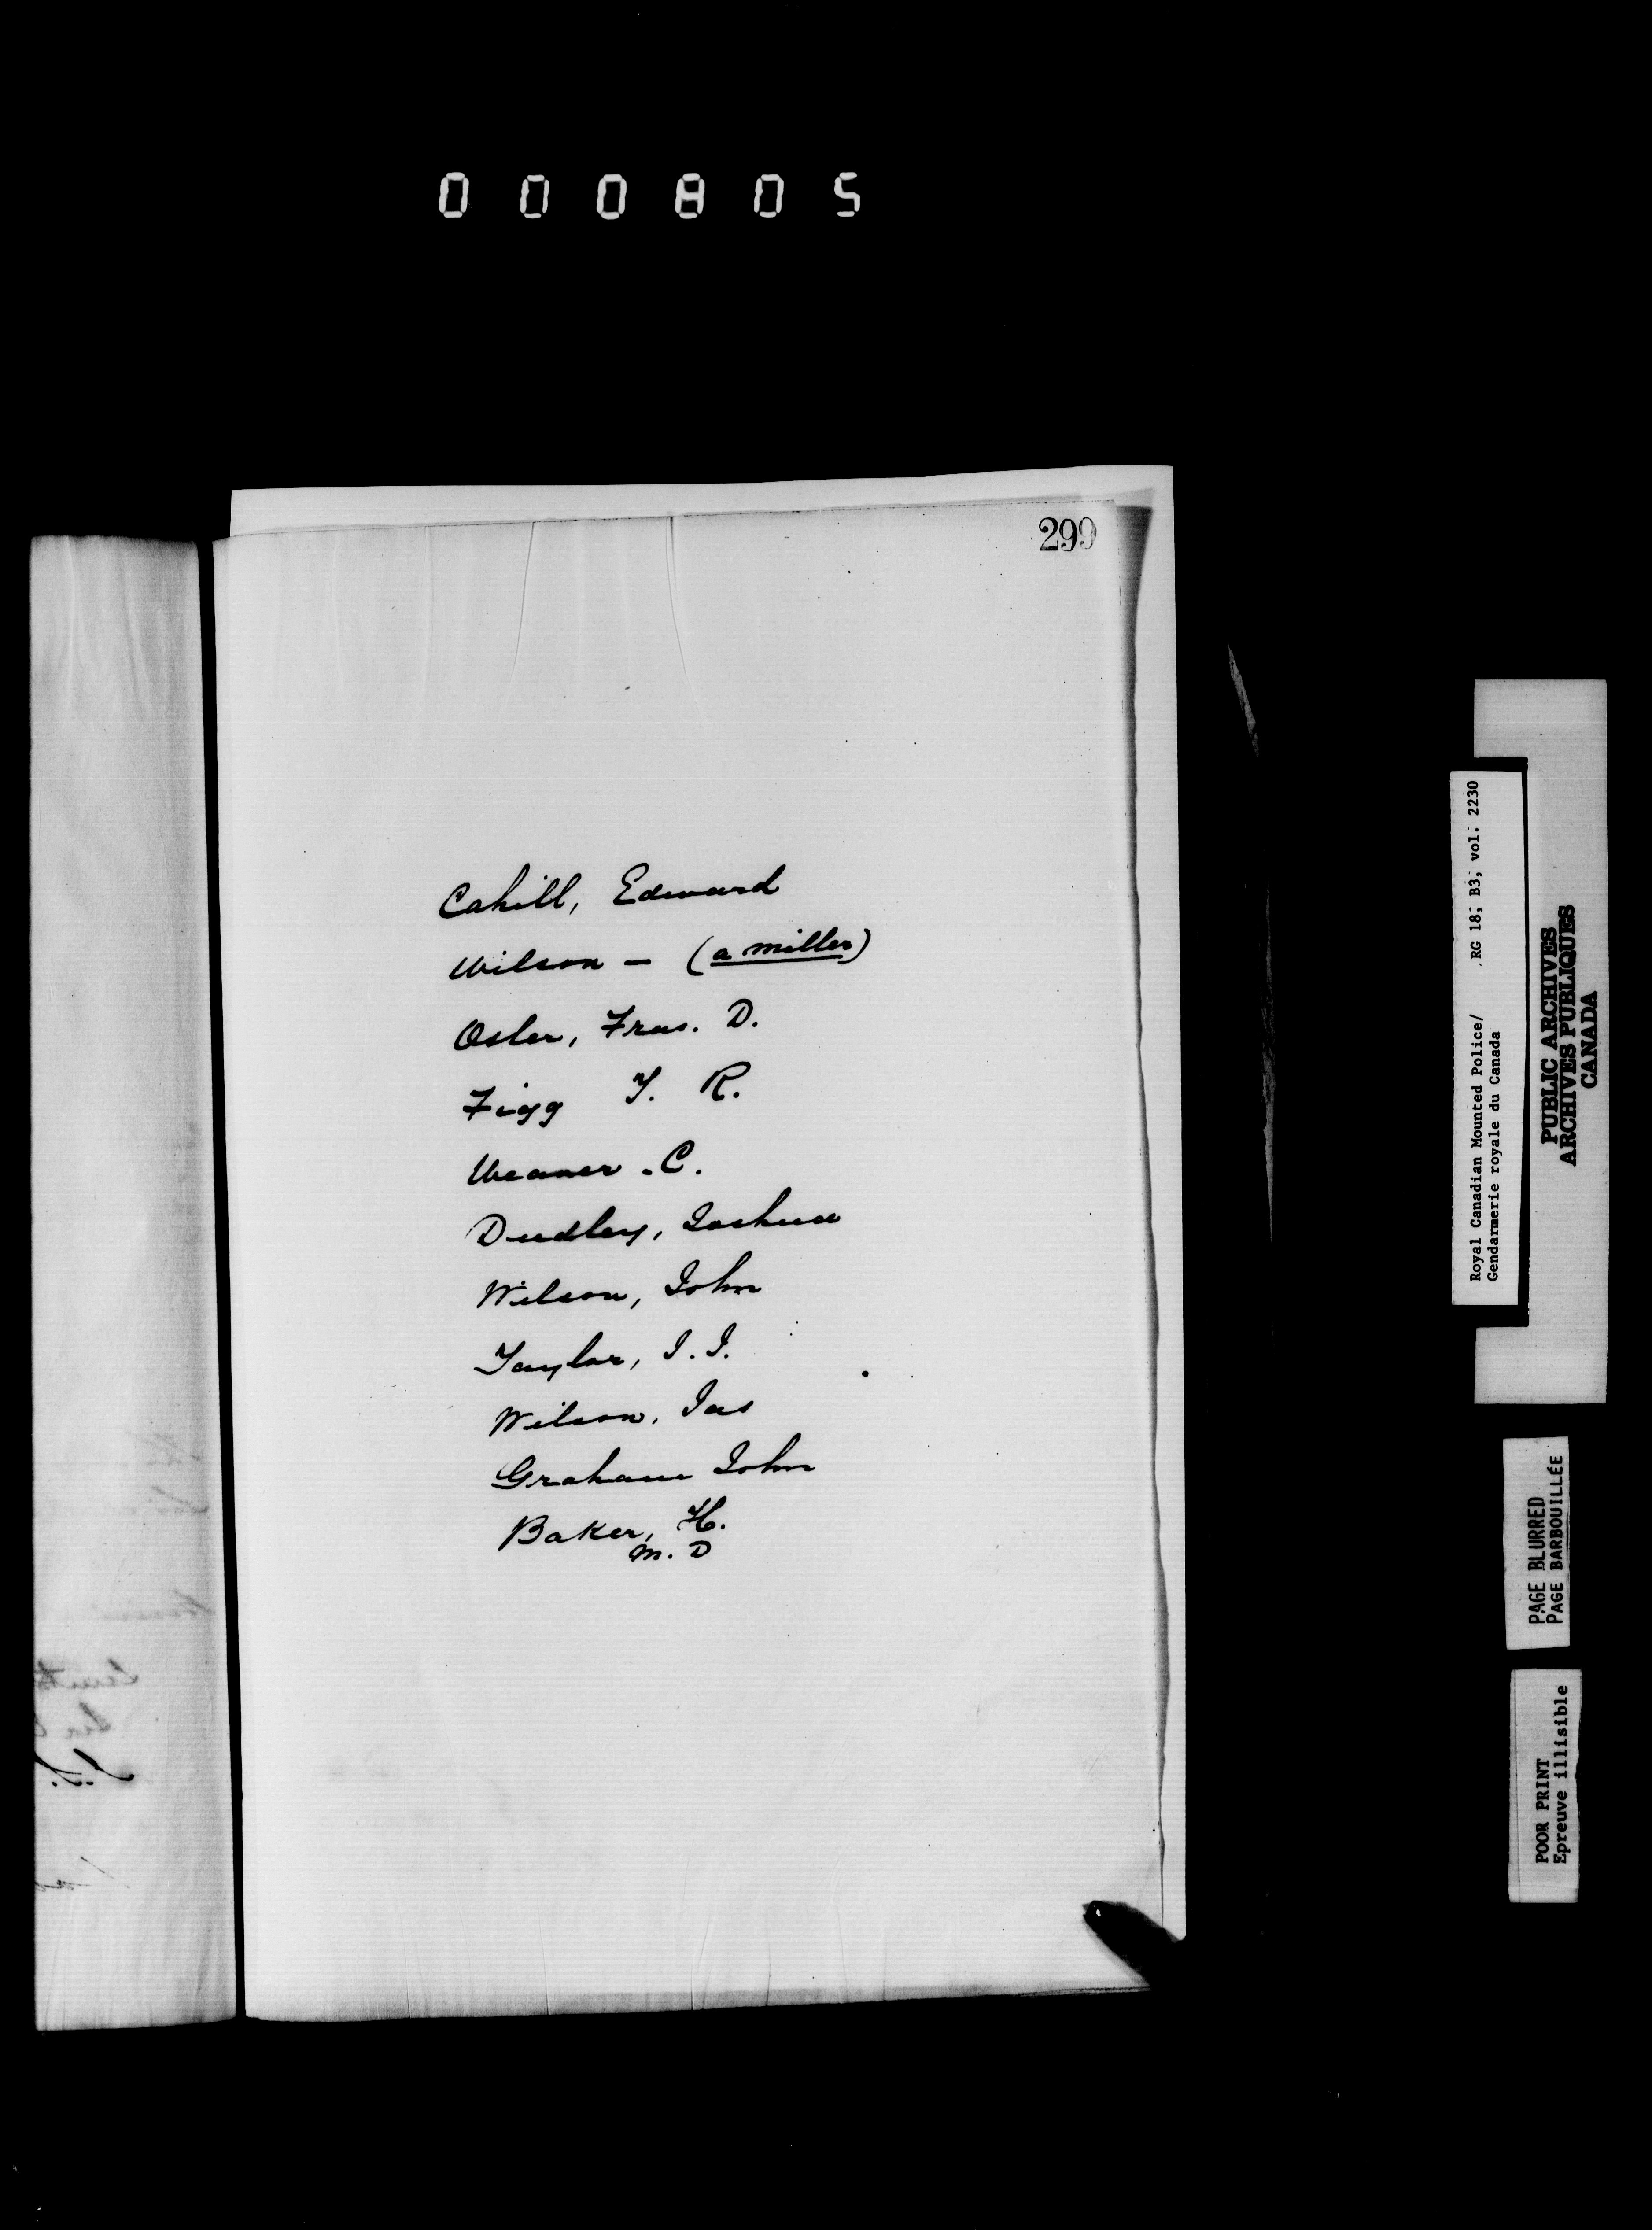 000805
299
Cahill, Edward
Wilson — (a miller)
Osler, Fras. D.
Figg T. R.
Weaver . C.
Dudley, Joshua
Wilson, John
Taylor, J. J.
Wilson, Jas
Graham John
Baker, H.
M. D
Royal Canadian Mounted Police/ RG 18, B3, vol. 2230
Gendarmerie royale du Canada
PUBLIC ARCHIVES
ARCHIVES PUBLIQUES
CANADA
PAGE BLURRED
PAGE BARBOUILLÉE
POOR PRINT
Epreuve illisible